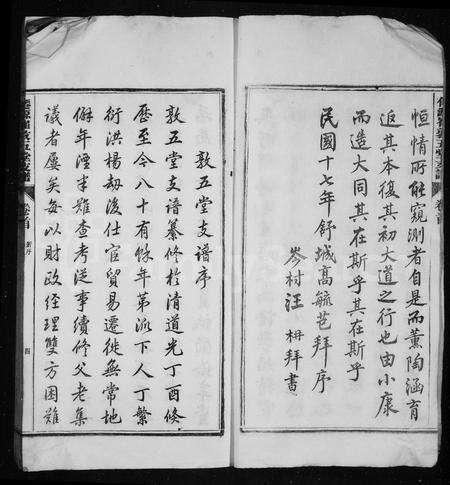 恒情所能窺測者自是而薰陶涵育
返其本復其初大道之行也由小康
而造大同其在斯乎其在斯乎
民國十七年舒城高毓𦭘拜序
岑村汪 枏拜書
敦五堂支譜序
敦五堂支譜纂修於清道光丁酉倏
歷至今八十有餘年第派下人丁繁
衍洪楊劫後仕宦貿易遷徙無常地
僻年湮半難查考從事續修父老集
議者屢矣每以財政經理雙方困難
卷首
新序
四